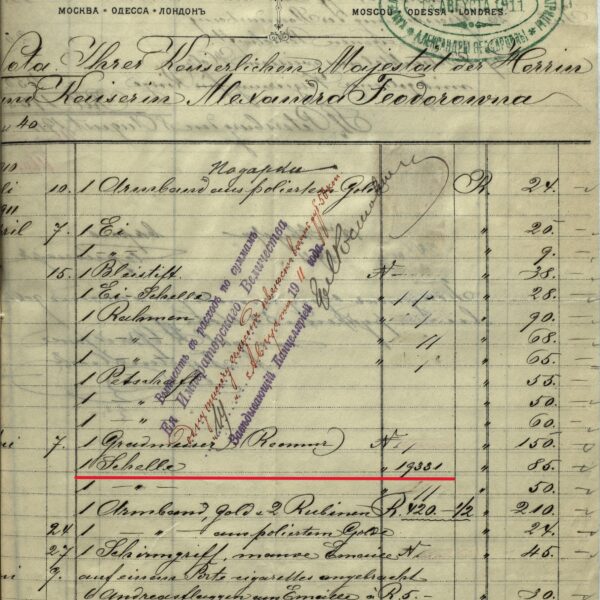 МОСКВА · ОДЕССА · ЛОНДОНЪ
MOSCOU · ODESSA · LONDRES
АВГУСТА 1911
АЛЕКСАНДРЫ ѲЕОДОРОВНЫ
Nota Ihrer Kaiserlichen Majestät der Herrin
und Kaiserin Alexandra Feodorowna
40
Подарки
10. 1 Armband aus poliertem Golde R. 24. —
1911
7. 1 Ei " 20. —
1 " " 9. —
15. 1 Bleistift N— " 38. —
1 Ei-Schelle " 28. —
1 Rahmen " 90. —
1 " " 68. —
1 " " 65. —
1 Petschaft " 55. —
1 — " — " 50. —
1 — " — " 60. —
7. 1 Reomur N " 150. —
1 Schelle " 19331 " 85. —
1 — " — " 50. —
1 Armband, Gold & 2 Rubinen R. 420. — 1/2 " 210. —
24 1 — " — aus poliertem Golde " 24. —
27 1 Schirmgriff, mauve Emaille N— " 45. —
7. auf einem Porte cigarettes angebracht
6 Andreasflaggen aus Emaille à R 5.— " 30. —
Выписать въ расходъ по суммамъ
Ея Императорскаго Величества
Августа 1911 года
Завѣдывающій Канцеляріею